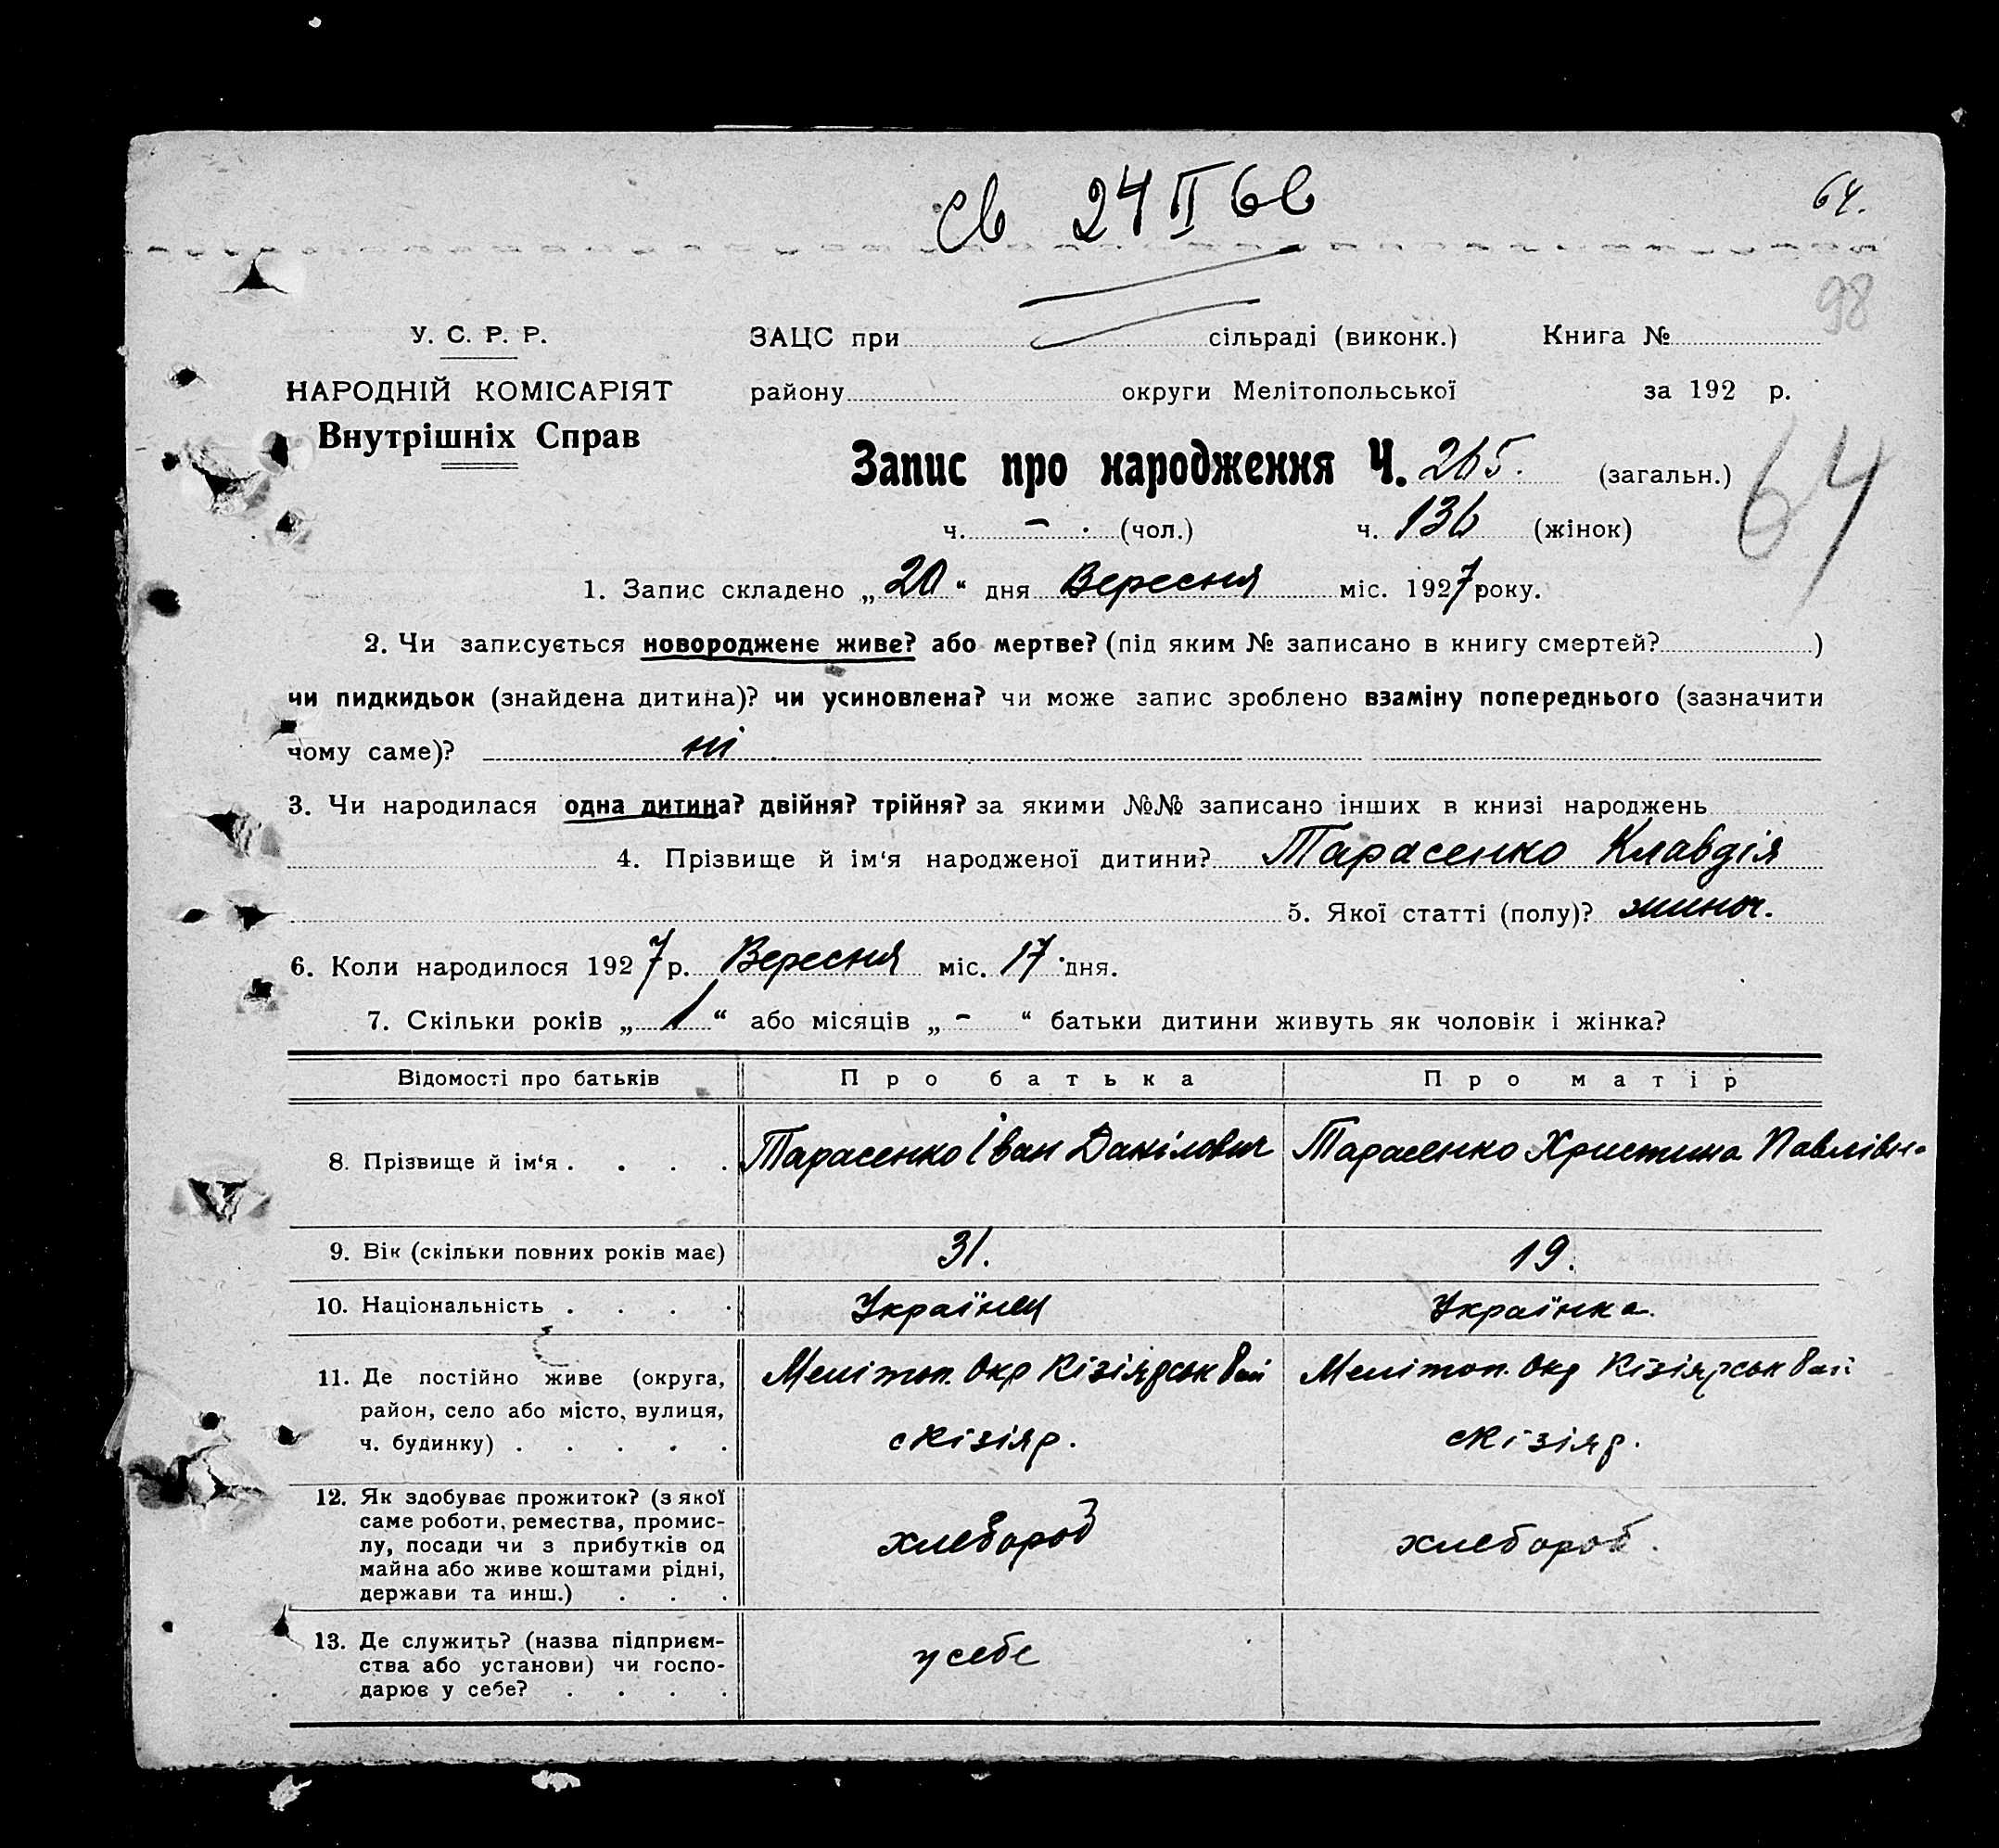 св 24 II 66
64.
98
У. С. Р. Р.
ЗАЦС при сільраді (виконк.) Книга №
НАРОДНІЙ КОМІСАРІЯТ
району округи Мелітопольської за 192 р.
Внутрішніх Справ
Запис про народження Ч. 265. (загальн.)
64
ч. - . (чол.) ч. 136 (жінок)
1. Запис складено „20“ дня Вересня міс. 1927 року.
2. Чи записується новороджене живе? або мертве? (під яким № записано в книгу смертей? )
чи пидкидьок (знайдена дитина)? чи усиновлена? чи може запис зроблено взаміну попереднього (зазначити
чому саме)? ні
3. Чи народилася одна дитина? двійня? трійня? за якими №№ записано інших в книзі народжень
4. Прізвище й ім‘я народженої дитини? Тарасенко Клавдія
5. Якої статті (полу)? жиноч.
6. Коли народилося 1927 р. Вересня міс. 17 дня.
7. Скільки років „1“ або місяців „-“ батьки дитини живуть як чоловік і жінка?
Відомості про батьків Про батька Про матір
8. Прізвище й ім‘я . . . . Тарасенко Іван Данілович Тарасенко Христина Павлівна
9. Вік (скільки повних років має) 31. 19.
10. Національність . . . . Українец Українка.
11. Де постійно живе (округа, Мелітоп. Окр Кізіярськ Рай Мелітоп. Окр Кізіярськ Рай
район, село або місто, вулиця,
ч. будинку) . . . . . с Кізіяр. с Кізіяр.
12. Як здобуває прожиток? (з якої
саме роботи, ремества, промис-
лу, посади чи з прибутків од хлебороб хлебороб.
майна або живе коштами рідні,
держави та инш.) . . .
13. Де служить? (назва підприєм-
ства або установи) чи госпо- у себе
дарює у себе? . . . .